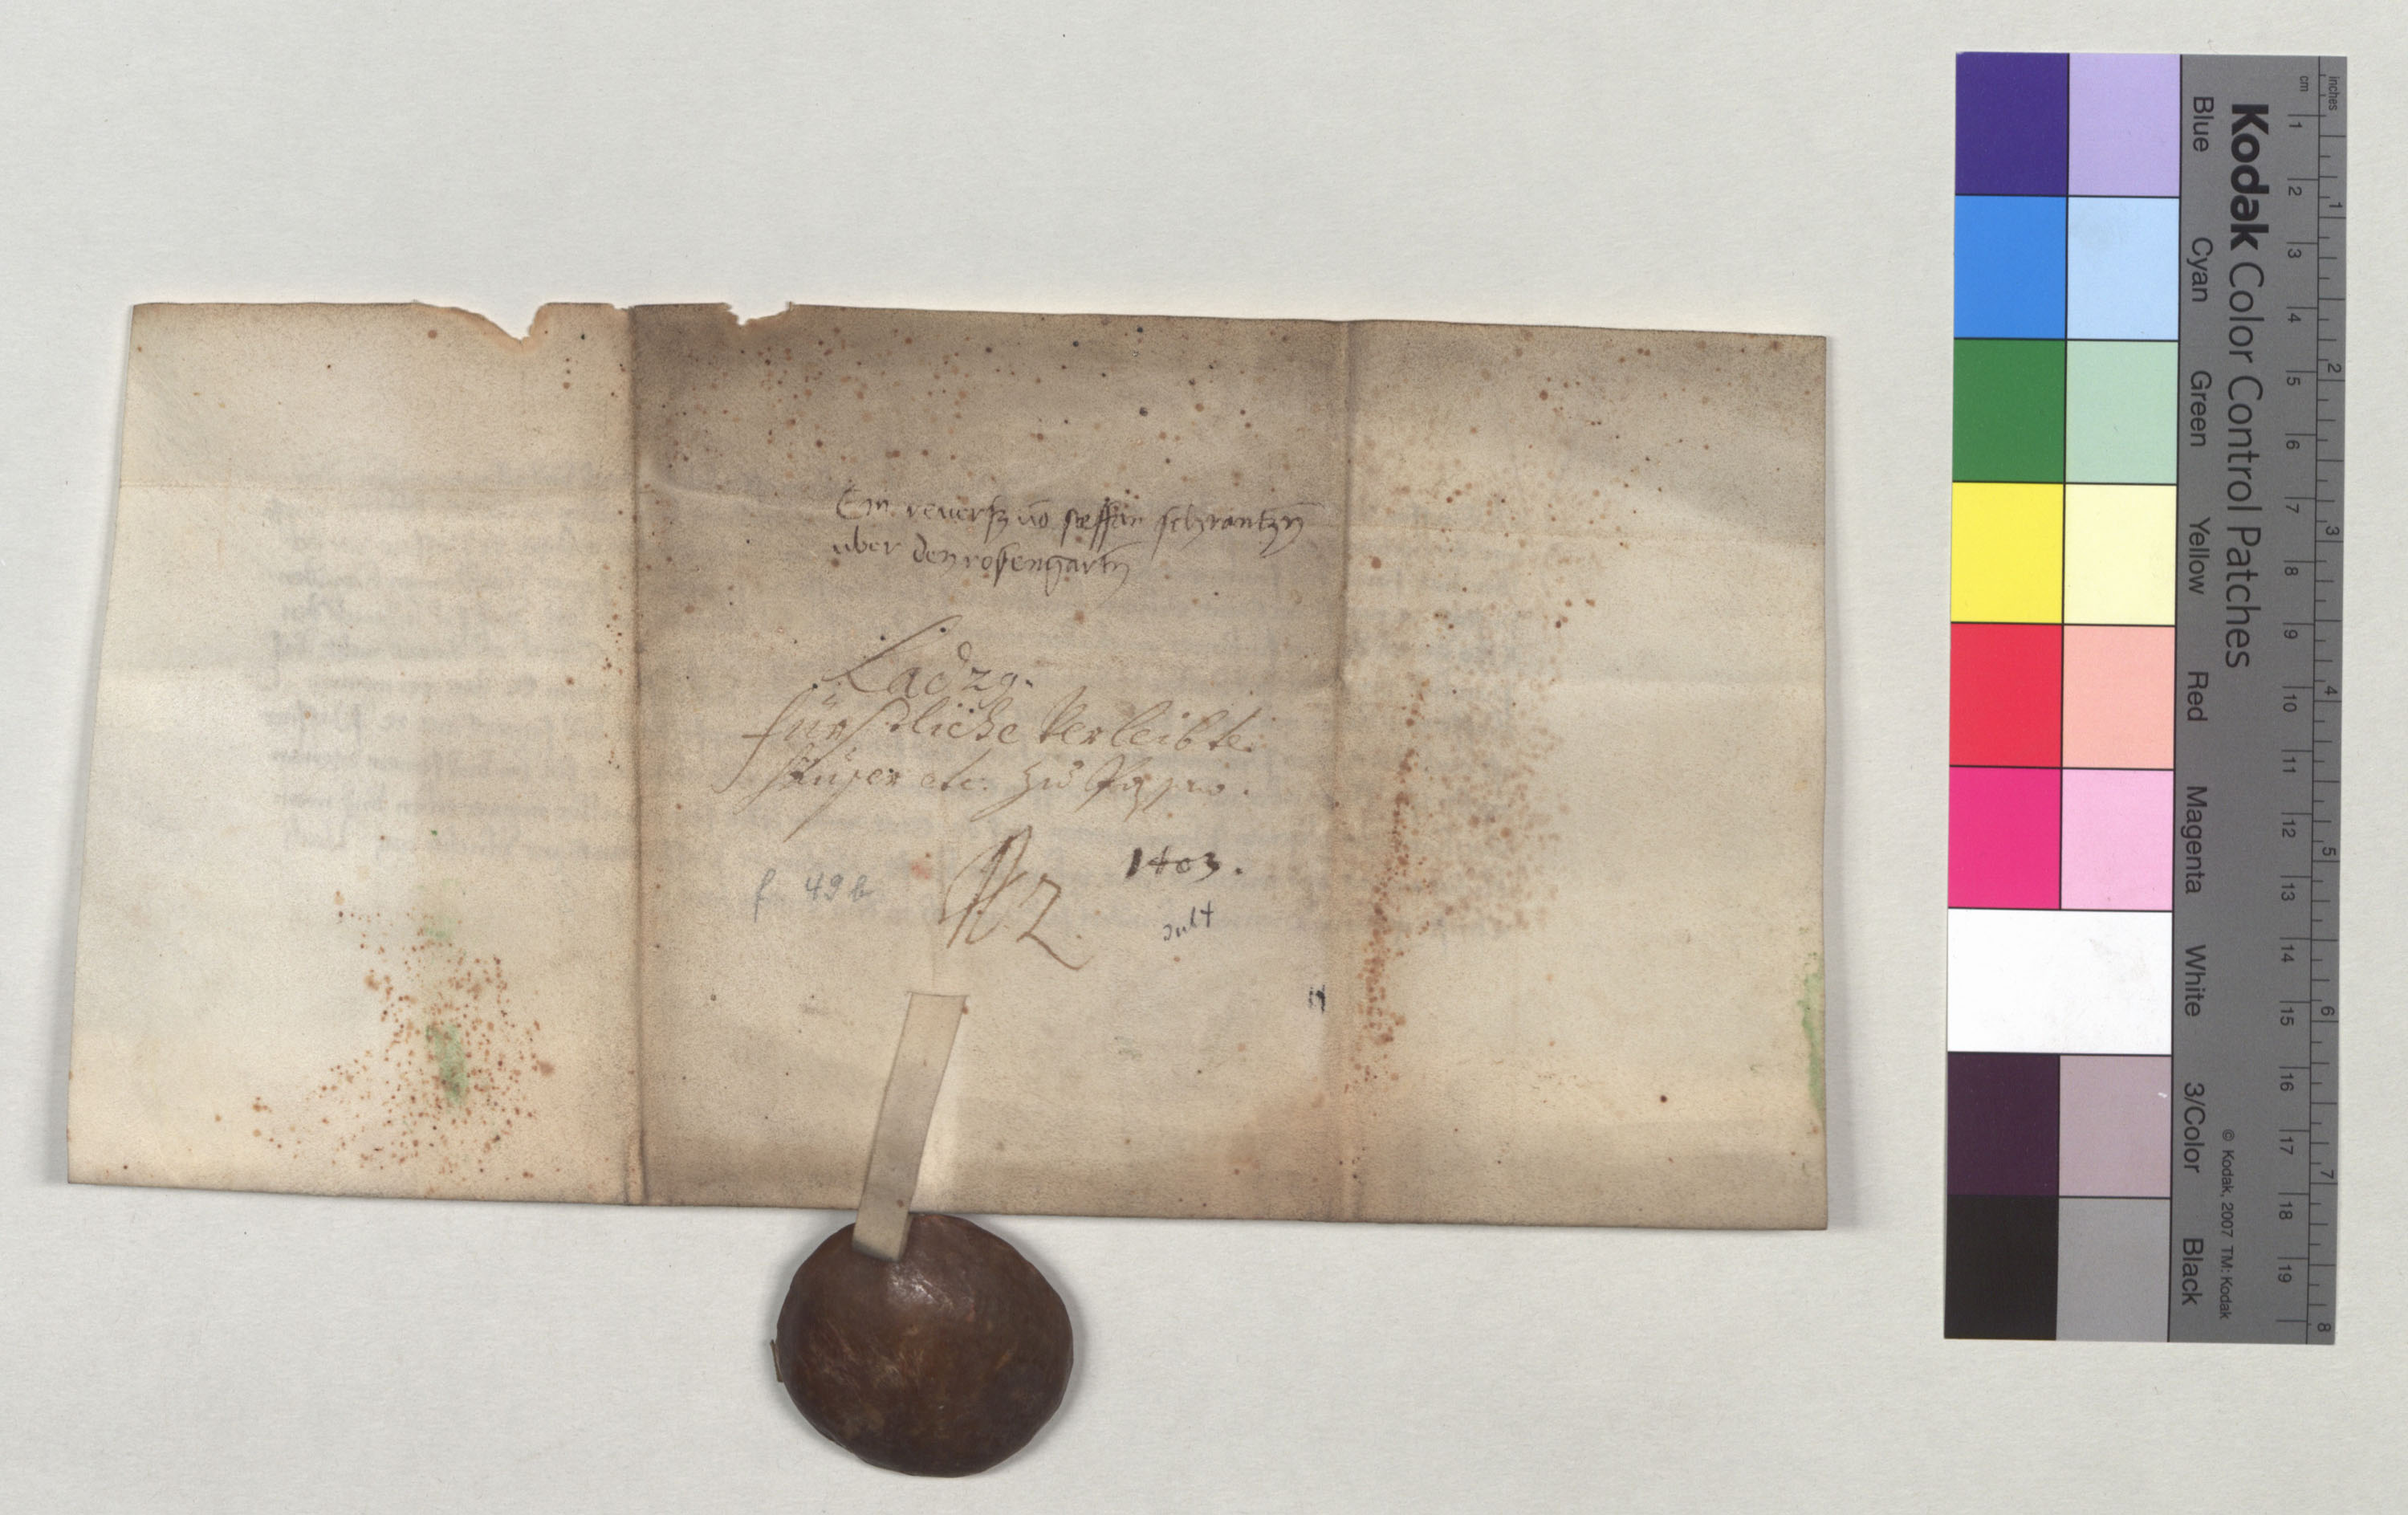 Ein reuersz vō steffan schrantzn̄
uber den rosengartn̄
Ladzg.
fürstliche Verleibte
häuser etc. zu
N. 2.
1403.
f 49 b
Kodak Color Control Patches
Blue Cyan Green Yellow Red Magenta White 3/Color Black
© Kodak, 2007 TM: Kodak
cm 1 2 3 4 5 6 7 8 9 10 11 12 13 14 15 16 17 18 19
inches 1 2 3 4 5 6 7 8